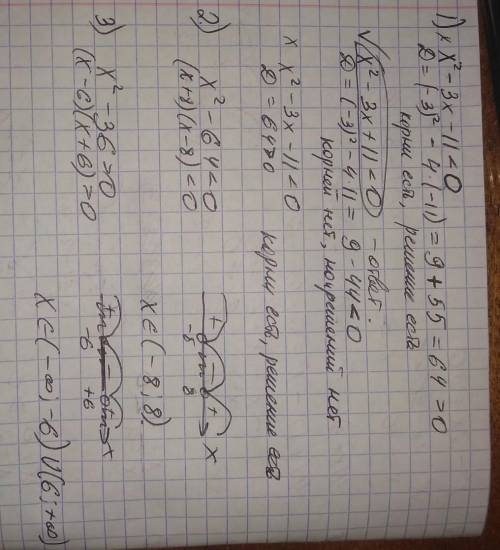 1) x x² - 3x - 11 < 0
D = (-3)² - 4·(-11) = 9 + 55 = 64 > 0
корни есть, решение есть
√ x² - 3x + 11 < 0 - ответ.
D = (-3)² - 4·11 = 9 - 44 < 0
корней нет, решений нет
x x² - 3x - 11 < 0
D = 64 > 0 корни есть, решение есть
2) x² - 64 < 0
(x+8)(x-8) < 0
+ - + x
-8 8
x ∈ (-8; 8)
3) x² - 36 > 0
(x-6)(x+6) > 0
+ - + x
-6 +6
x ∈ (-∞; -6) U (6; +∞)